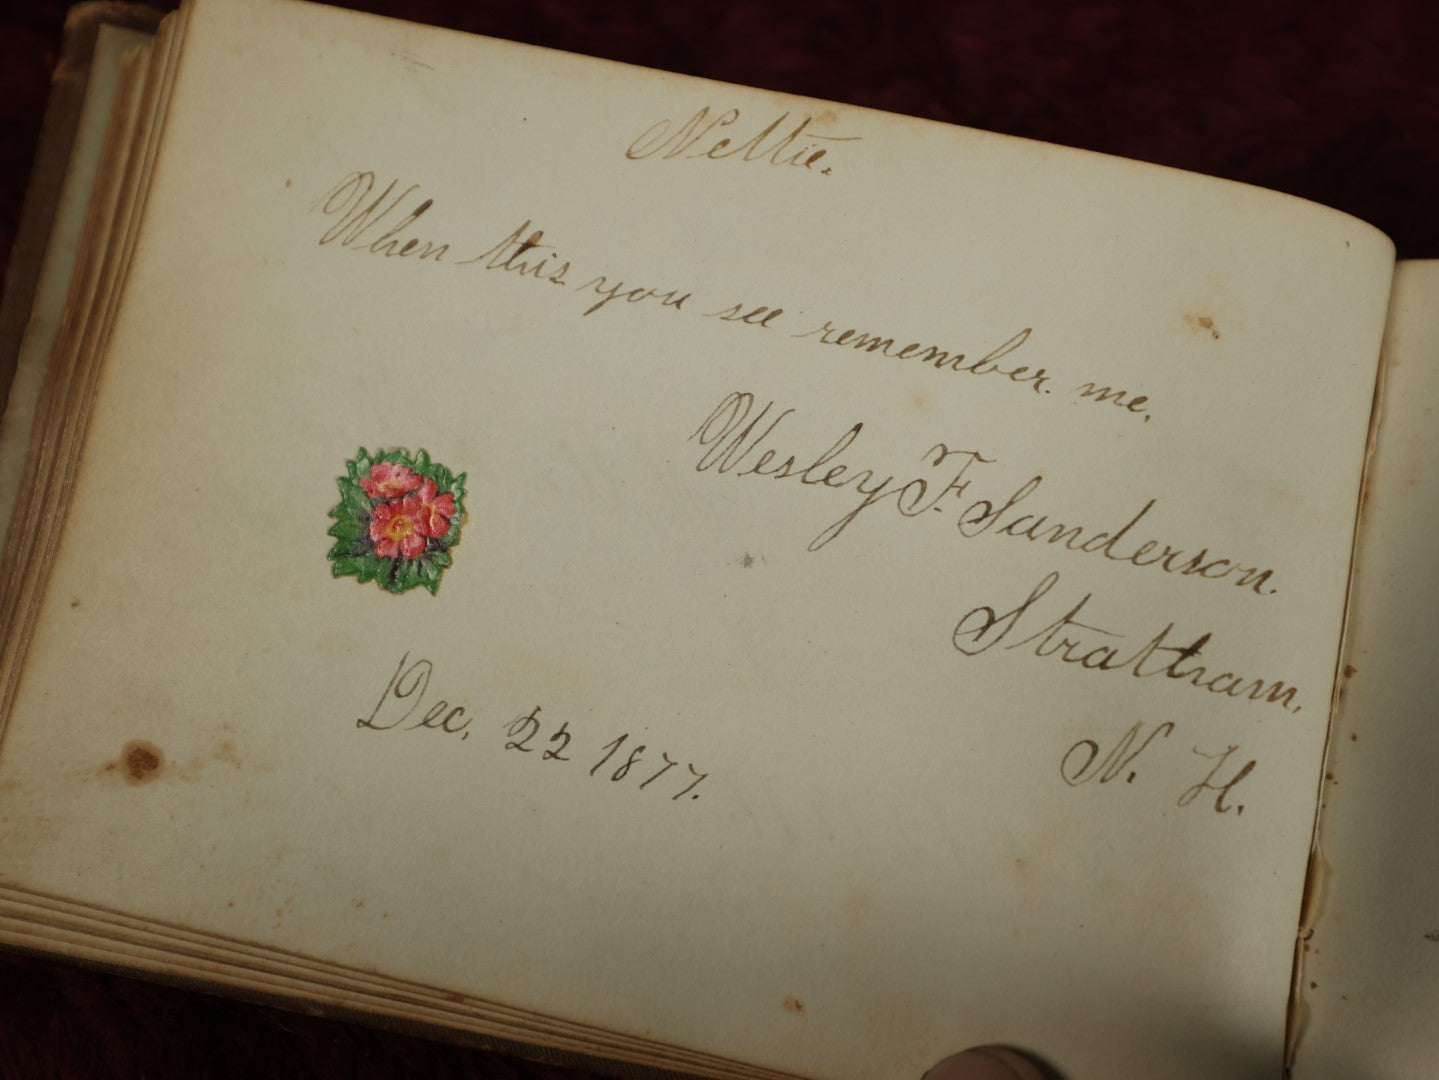 Nettie.
When this you see remember me.
Wesley F. Sanderson.
Stratham,
N. H.
Dec. 22 1877.